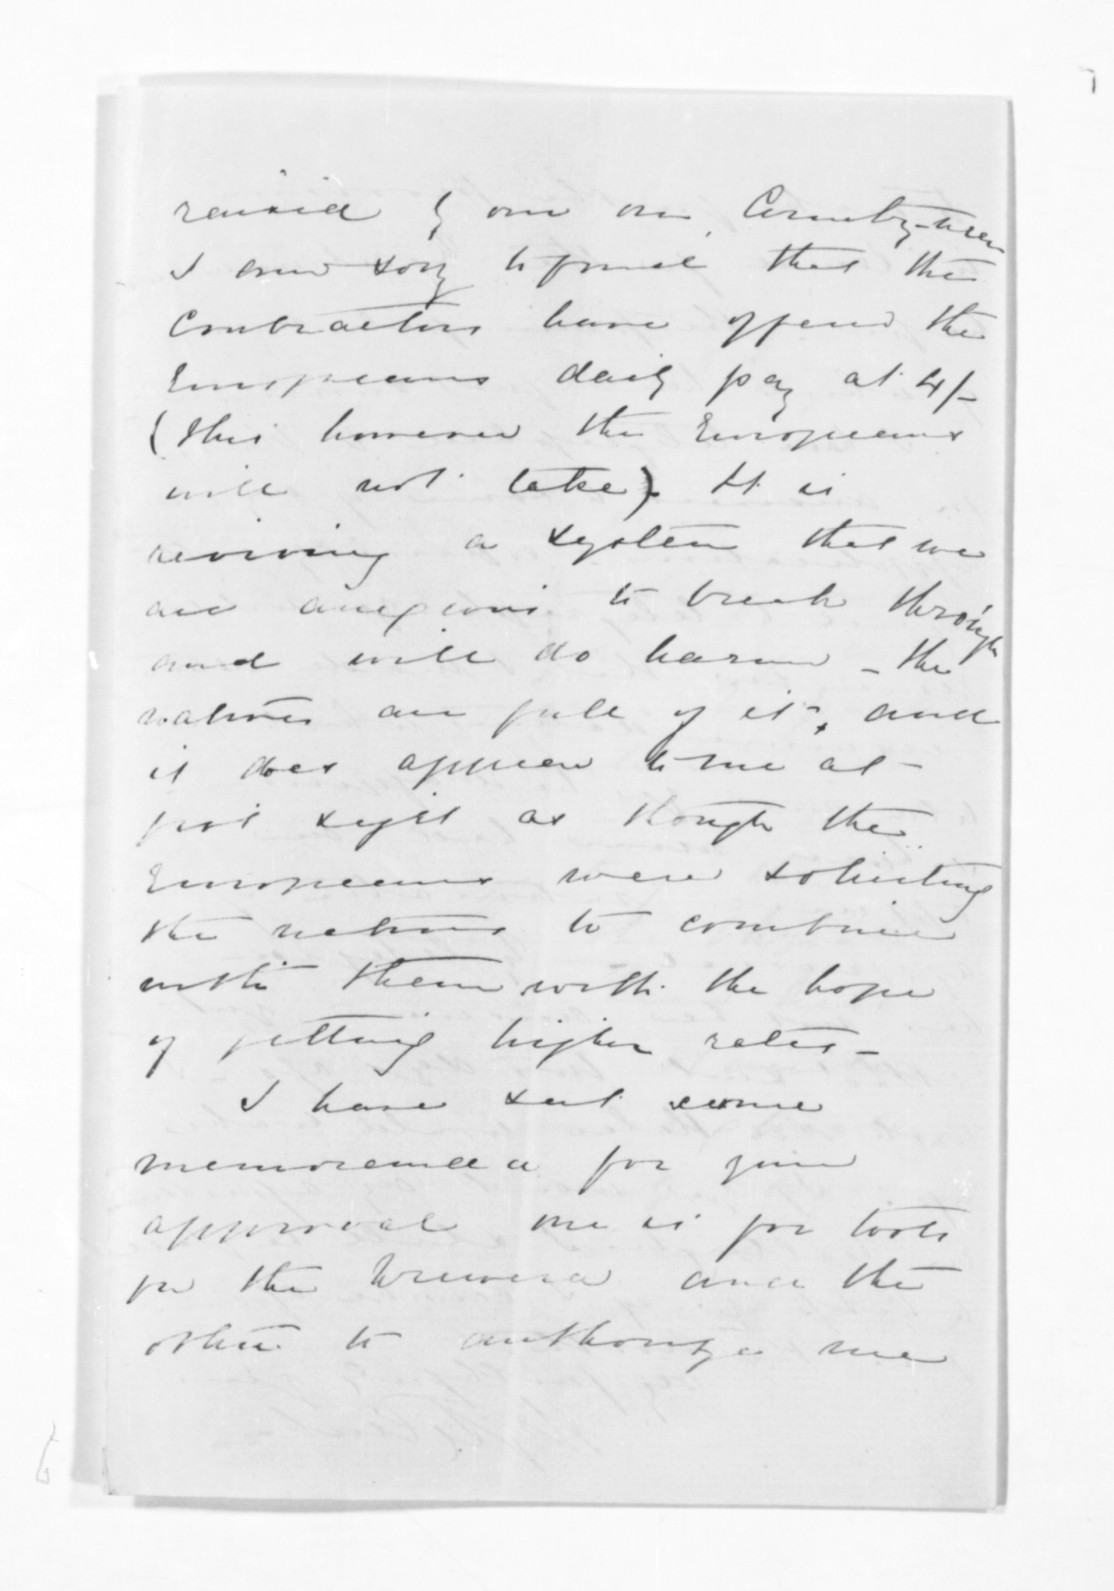 raised by our own Country-men
I am sorry to find that the
Contractors have offered the
Europeans daily pay at 4/-
(this however the Europeans
will not take). It is
reviving a system that we
are anxious to break through
and will do harm - the
natives are full of it, and
it does appear to me at -
first sight as though the
Europeans were soliciting
the natives to combine
with them with the hope
of getting higher rates -
I have sent some
memoranda for your
approval one is for tools
for the Urewera and the
other to authorize me